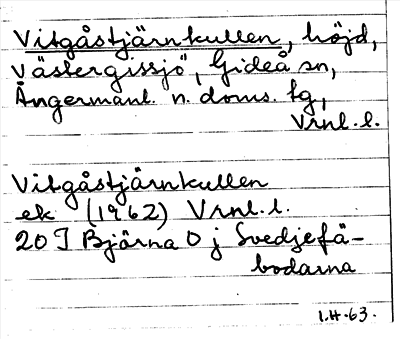 Vitgåstjärnkullen, höjd,
Västergissjö, Gideå sn,
Ångermanl. n. doms. tg,
Vrnl. l.
Vitgåstjärnkullen
ek (1962) Vrnl. l.
20 I Björna O j Svedjefä-
bodarna
I.H.63.